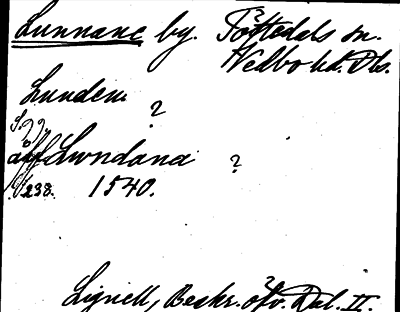 Lunnane by. Töftedals sn.
Vedbo hd. Dls.
Lunden ?
aff Lwndana ?
238. 1540.
Lignell, Beskr. öfv. Dal. II.